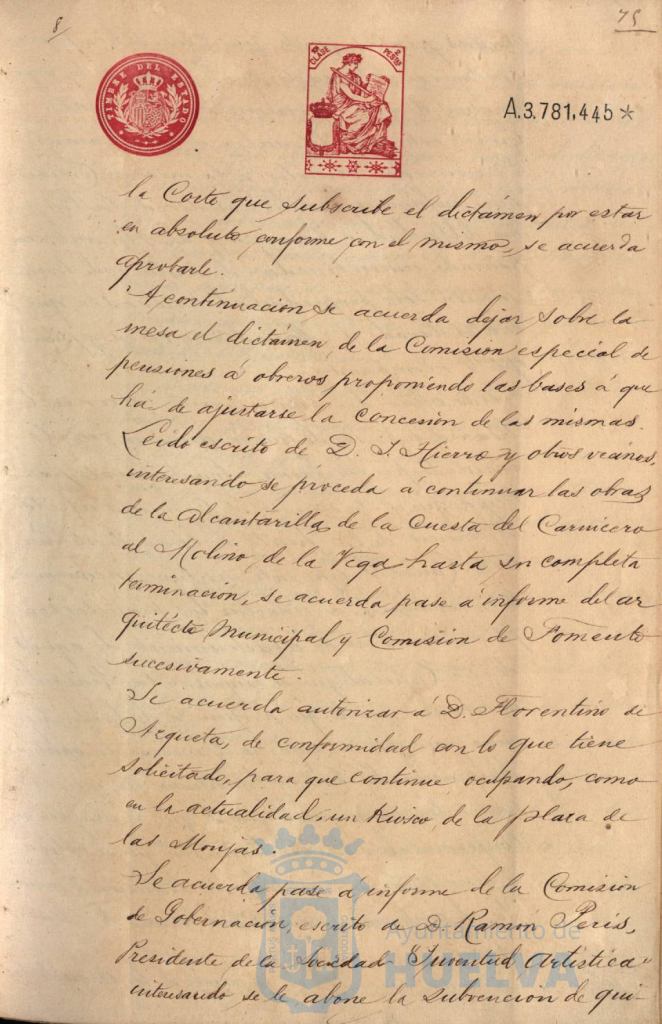 8
75
TIMBRE DEL ESTADO
CLASE
PESETAS
A.3.781,445*
la Corte que subscribe el dictámen por estar
en absoluto conforme con el mismo, se acuerda
aprobarle.
A continuación se acuerda dejar sobre la
mesa el dictámen de la Comisión especial de
pensiones á obreros proponiendo las bases á que
há de ajustarse la concesión de las mismas.
Leido escrito de D. J. Hierro y otros vecinos,
interesando se proceda á continuar las obras
de la alcantarilla de la Cuesta del Carnicero
al Molino de la Vega hasta su completa
terminación, se acuerda pase á informe del ar
quitécto Municipal y Comisión de Fomento
sucesivamente.
Se acuerda autorizar á D. Florentino de
Azqueta, de conformidad con lo que tiene
solicitado, para que continue ocupando, como
en la actualidad, un Kiosco de la plaza de
las Monjas.
Se acuerda pase á informe de la Comisión
de Gobernación, escrito de D. Ramon Peris,
Presidente de la Sociedad "Juventud Artistica"
interesando se le abone la subvención de qui-
Ayuntamiento de
HUELVA